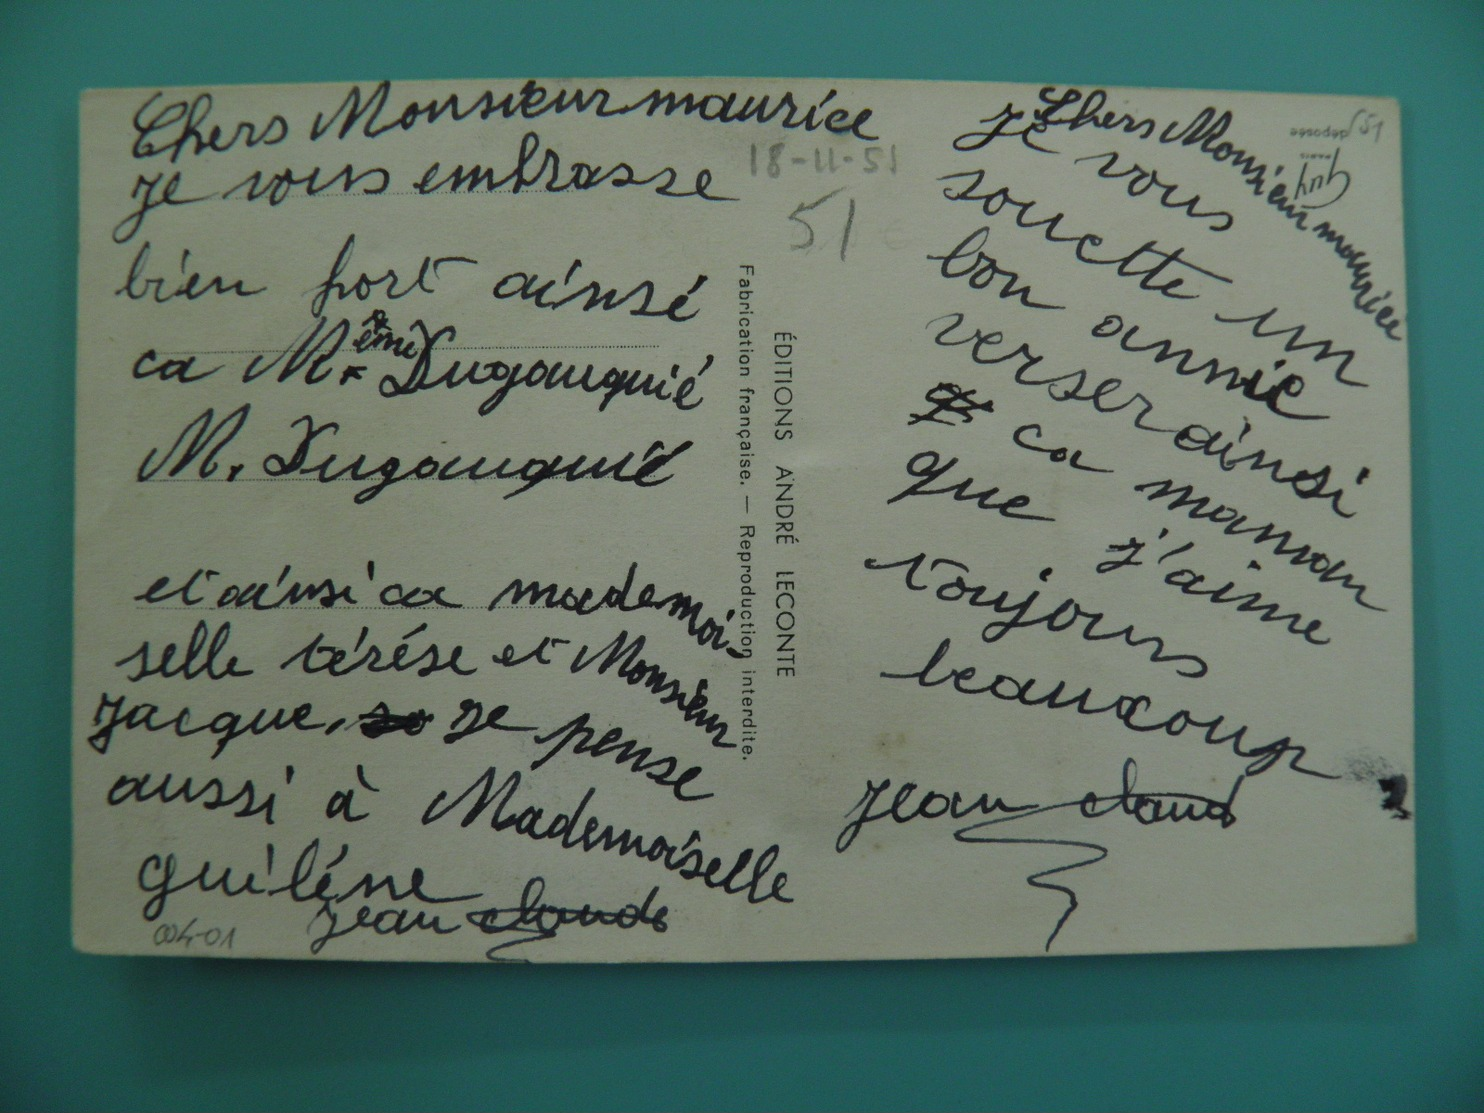 Chers Monsieur maurice
Je vous embrasse
bien fort ainsé
ca M.ème Dugouquié
M. Dugouquié
et ainsi ca mademoi-
selle térése et Monsieur
Jacque. Je pense
aussi à Mademoiselle
guiléne
Jean claude
004-01
18-11-51
51
ÉDITIONS ANDRÉ LECONTE
Fabrication française. — Reproduction interdite.
Chers Monsieur maurice
Je vous
souette un
bon annie
verser ainsi
ca maman
que j'aime
toujours
beaucoup
Jean claud
51
Guy
PARIS
déposée